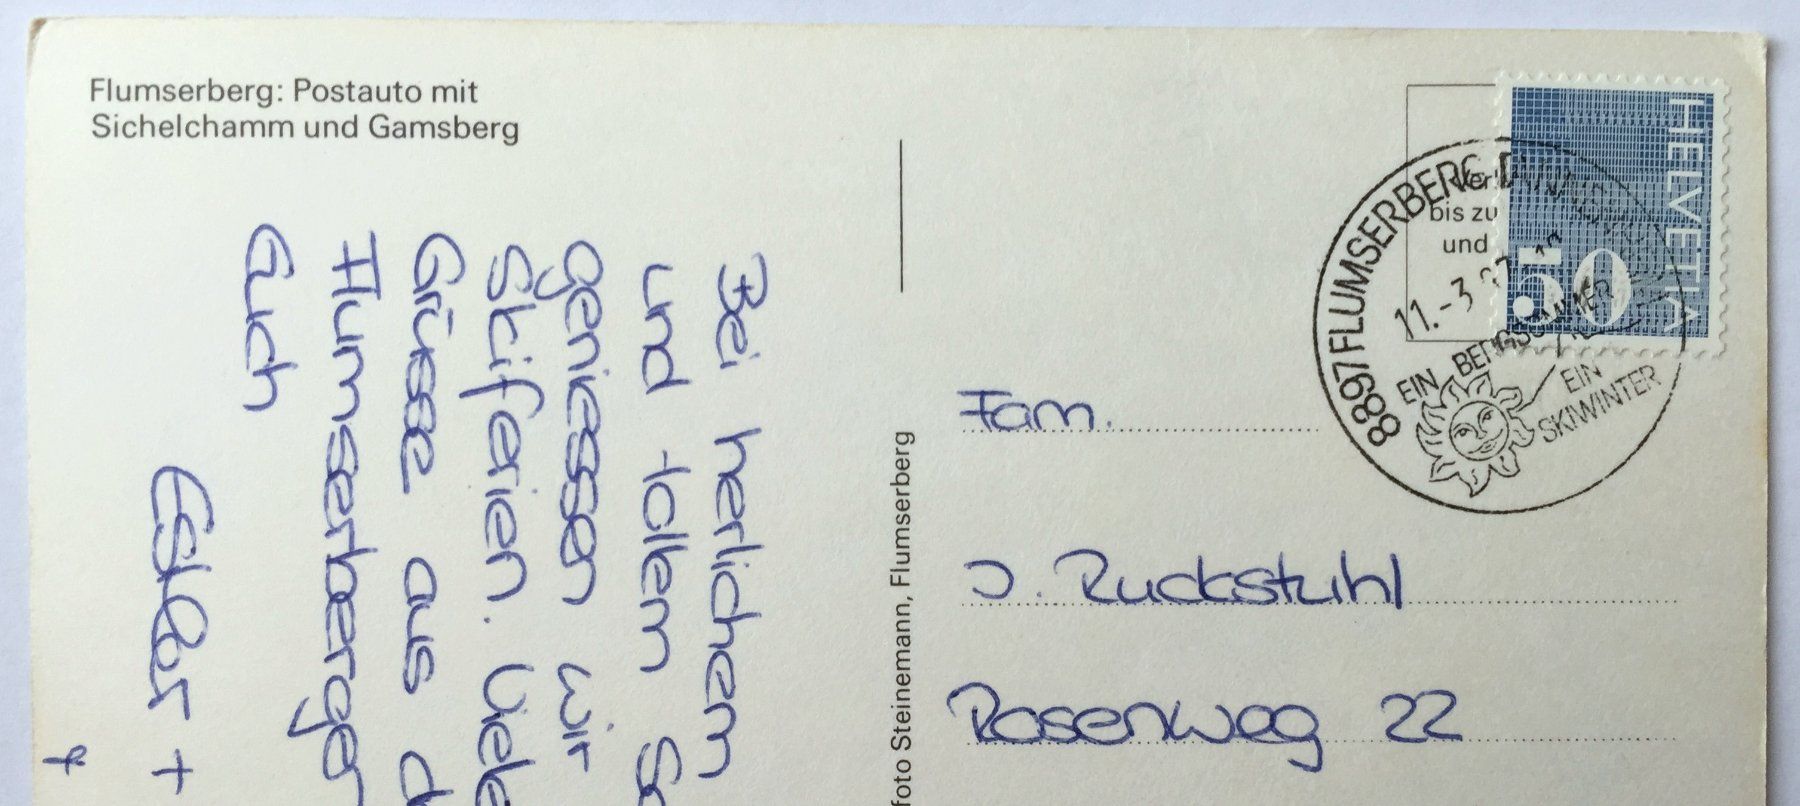 Flumserberg: Postauto mit
Sichelchamm und Gamsberg
Bei herlichem
und tollem
geniessen wir
Skiferien. Viele
Grüsse aus
Flumserberger
Euch
Esther +
foto Steinemann, Flumserberg
HELVETIA
50
bis zu
und
8897 FLUMSERBERG
11.-3
EIN BERGSOMMER
EIN
SKIWINTER
Fam.
J. Ruckstuhl
Rosenweg 22